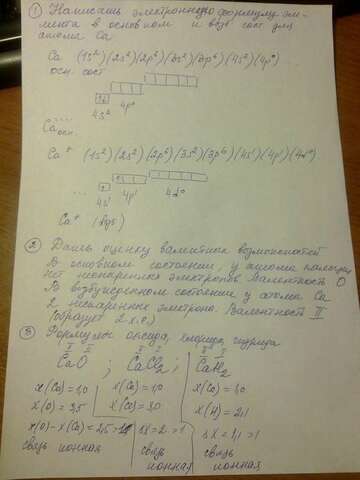 ① Написать электронную формулу эле-
мента в основном и возб. сост для
атома Ca
Ca (1s²)(2s²)(2p⁶)(3s²)(3p⁶)(4s²)(4p⁰)
осн. сост
4s² 4p⁰
Ca осн.
Ca* (1s²)(2s²)(2p⁶)(3s²)(3p⁶)(4s¹)(4p¹)(4d⁰)
... 4s¹ 4p¹ 4d⁰
Ca* (возб)
② Дать оценку валентных возможностей
В основном состоянии, у атома кальция
нет неспаренных электронов. Валентность 0
В возбужденном состоянии у атома Ca
2 неспаренных электрона. Валентность II
(образует 2 х.с.)
③ Формулы оксида, хлорида, гидрида
II II I II I
CaO ; CaCl₂ ; CaH₂
x(Ca)=1,0 x(Ca)=1,0 x(Ca)=1,0
x(O)=3,5 x(Cl)=3,0 x(H)=2,1
x(O)-x(Ca)=2,5 ΔX=2 ΔX=1,1
связь ионная связь ионная связь ионная